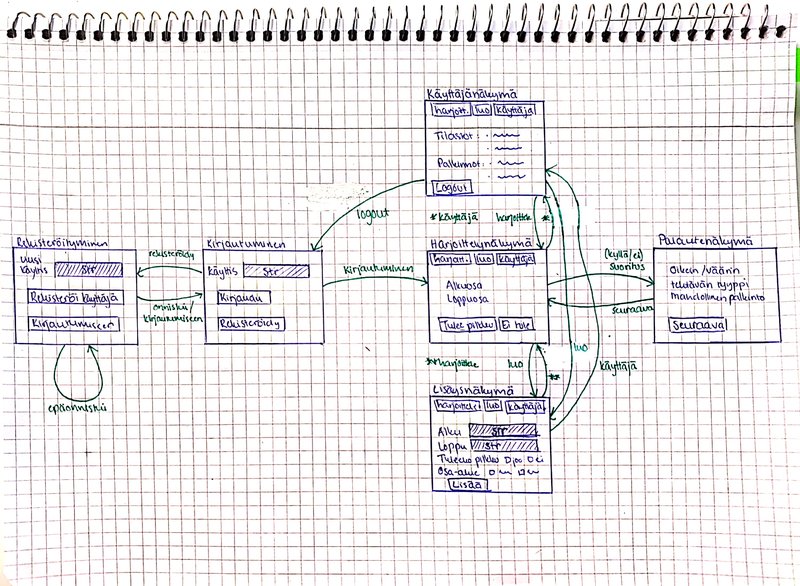 Käyttäjänäkymä
harjoit. luo käyttäjä
Tilastot:
Palkinnot:
Logout
logout
*käyttäjä harjoittele *
Rekisteröityminen
uusi
käyttis str
Rekisteröi käyttäjä
Kirjautumiseen
epäonnistui
rekisteröidy
onnistui/
kirjautumiseen
Kirjautuminen
käyttis str
Kirjaudu
Rekisteröidy
kirjautuminen
Harjoittelunäkymä
harjoit. luo käyttäjä
Alkuosa
Loppuosa
Tulee pilkku Ei tule
(kyllä/ei)
suoritus
seuraava
Palautenäkymä
Oikein/väärin
tehtävän tyyppi
mahdollinen palkinto
Seuraava
**harjoittele luo **
luo
käyttäjä
Lisäysnäkymä
harjoittele luo käyttäjä
Alku str
Loppu str
Tuleeko pilkku joo ei
Osa-alue
Lisää